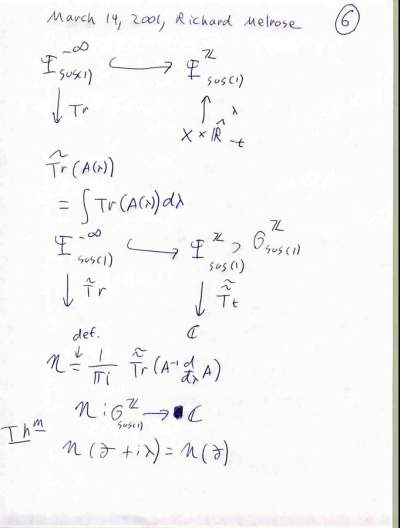 March 14, 2001, Richard Melrose ⑥
Ψ^{-∞}_{sus(1)} ↪ Ψ^{ℤ}_{sus(1)}
↓ Tr ↑ λ
X × ℝ̂_{-t}
T̃r (A(λ))
= ∫ Tr (A(λ)) dλ
Ψ^{-∞}_{sus(1)} ↪ Ψ^{ℤ}_{sus(1)} ⊃ G^{ℤ}_{sus(1)}
↓ T̃r ↓ T̃̃r
ℂ
def.
η = 1/πi T̃r (A^{-1} d/dλ A)
η : G^{ℤ}_{sus(1)} → ℂ
Thm
η (∂ + iλ) = η (∂)